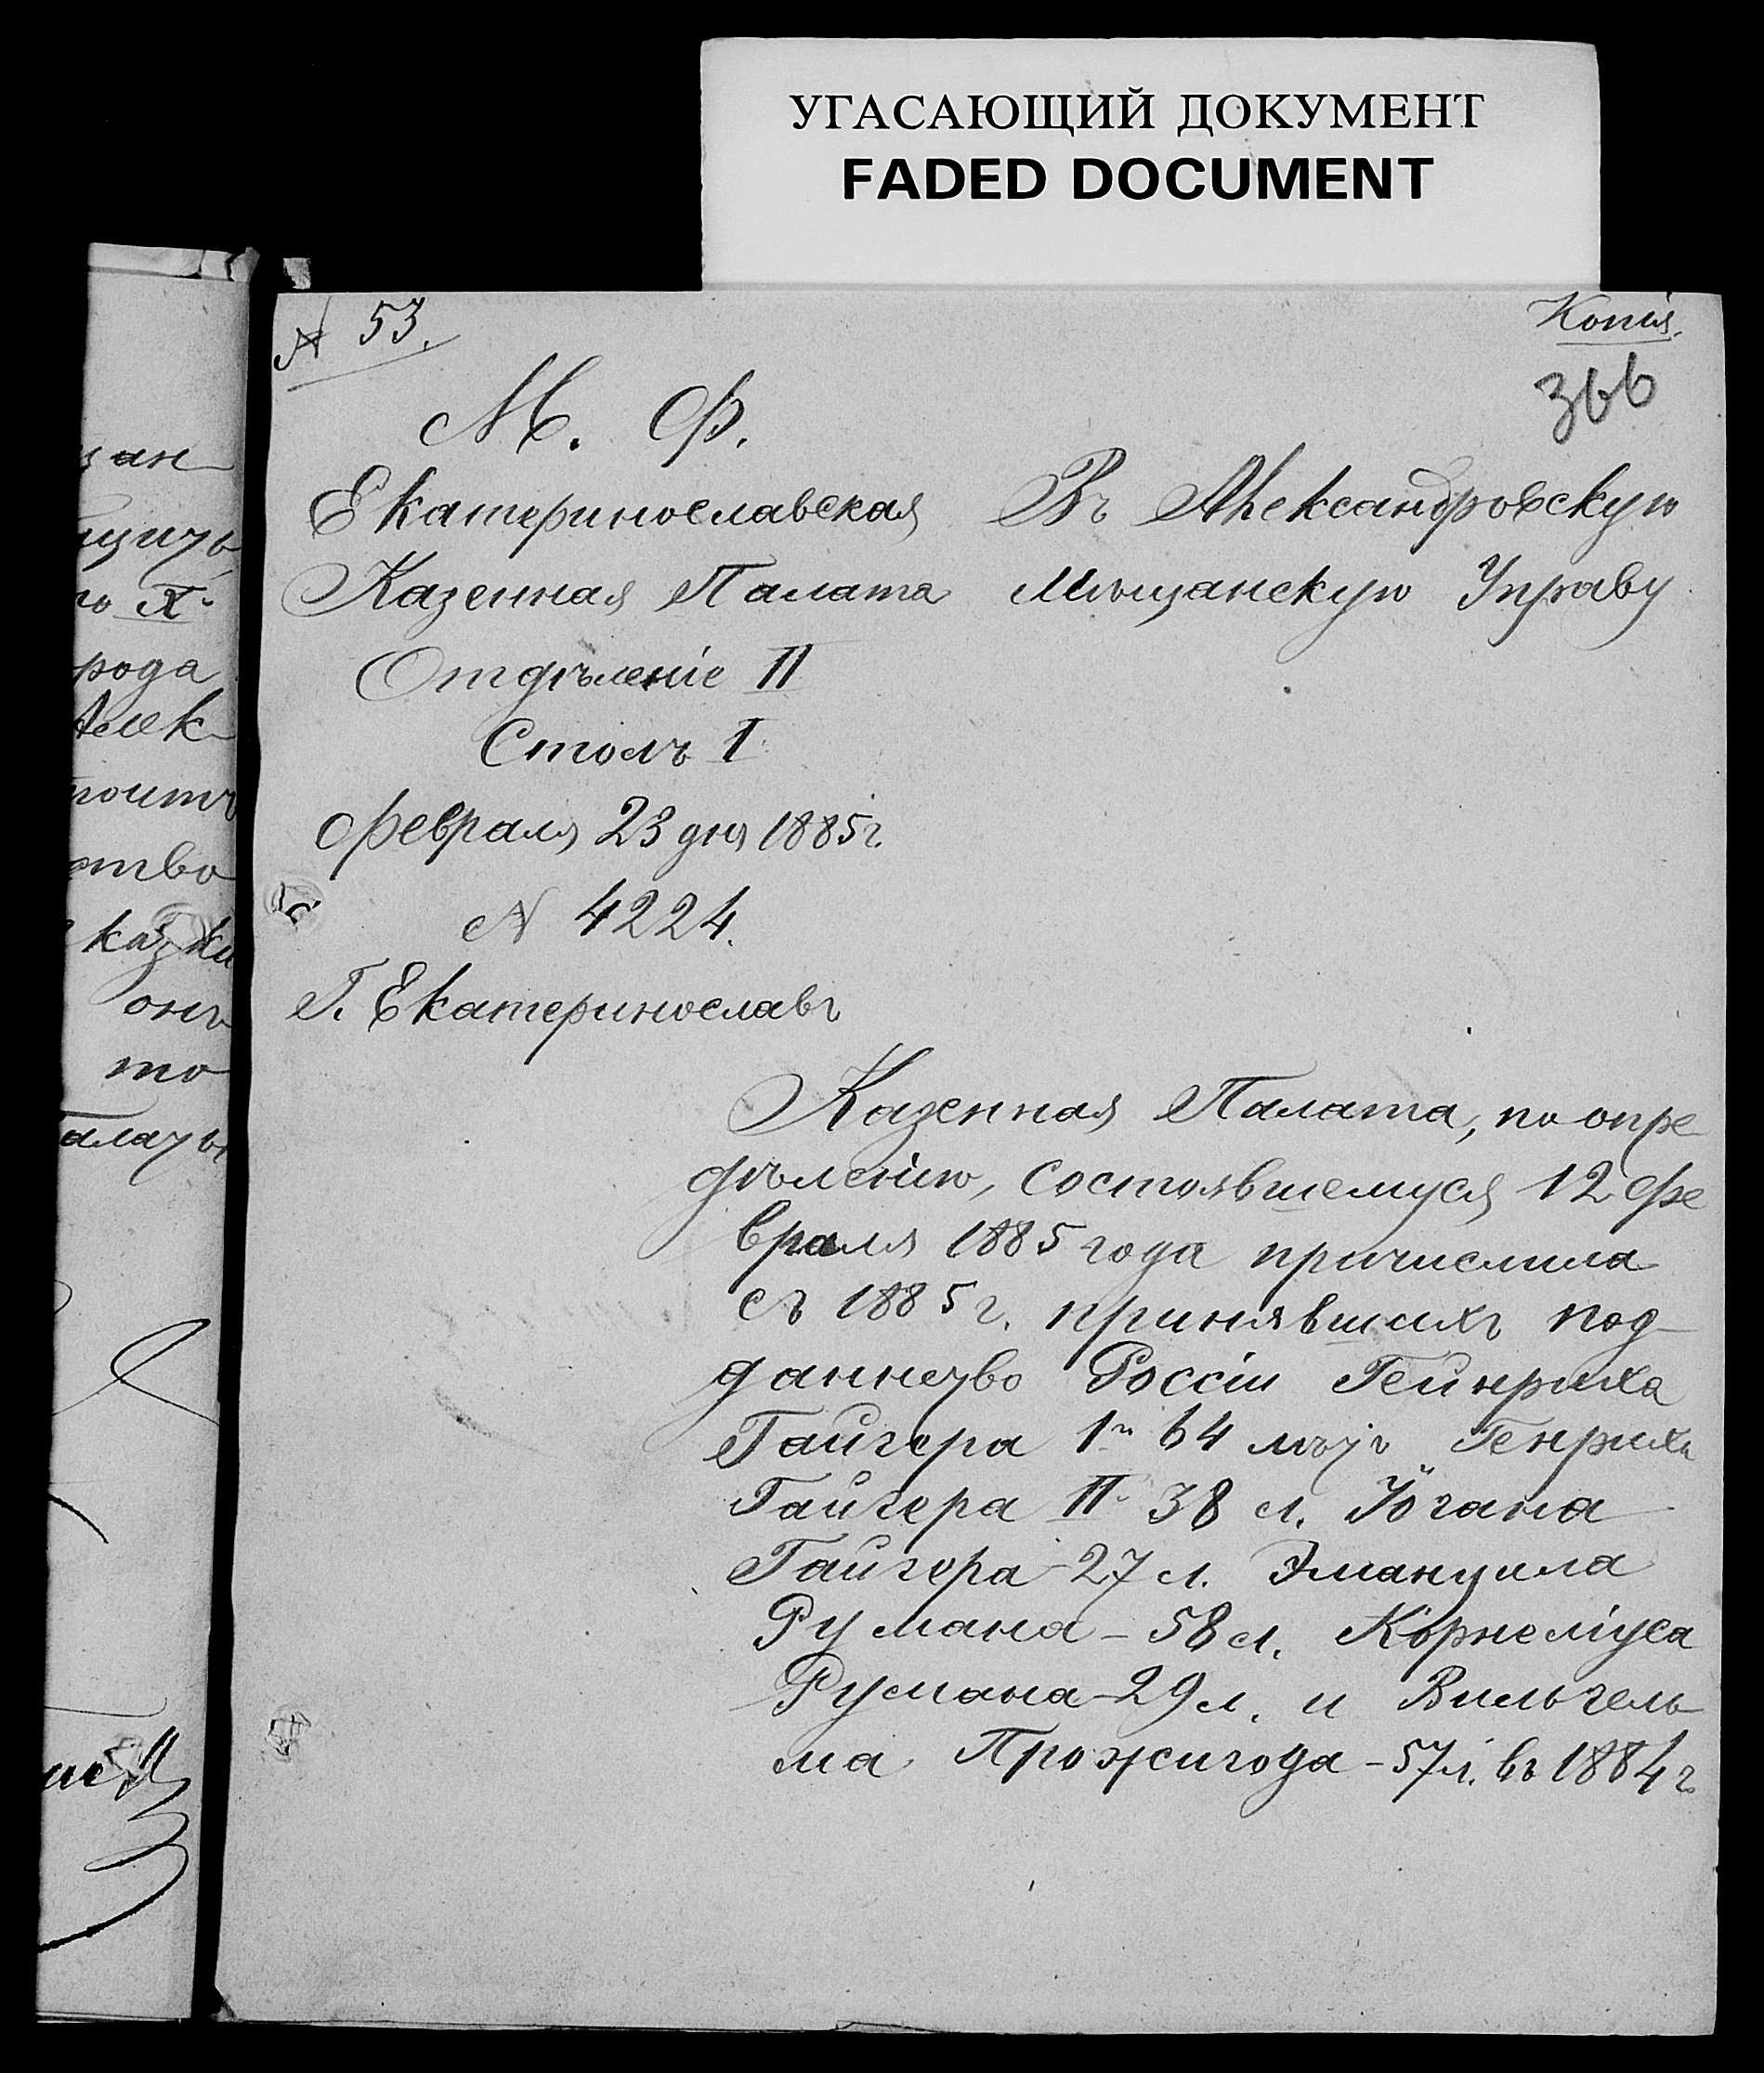 УГАСАЮЩИЙ ДОКУМЕНТ
FADED DOCUMENT
№ 53.
Копія.
366
М. Ф.
Екатеринославская
Казенная Палата
Отдѣленіе II
Столъ I
Февраля 23 дня 1885 г.
№ 4224.
Г. Екатеринославъ
Въ Александровскую
Мѣщанскую Управу
Казенная Палата, по опре-
дѣленію, состоявшемуся 12 Фе
враля 1885 года причислила
съ 1885 г. принявшихъ под-
данство Россіи Гейнриха
Гайгера 1й 64 лѣтъ Генриха
Гайгера II 38 л. Югана
Гайгера-27 л. Эмануила
Румана-58 л. Корнеліуса
Румана-29 л. и Вильгель-
ма Прожигода-57 л. въ 1884 г.
рода
Алек-
казки
онъ
то